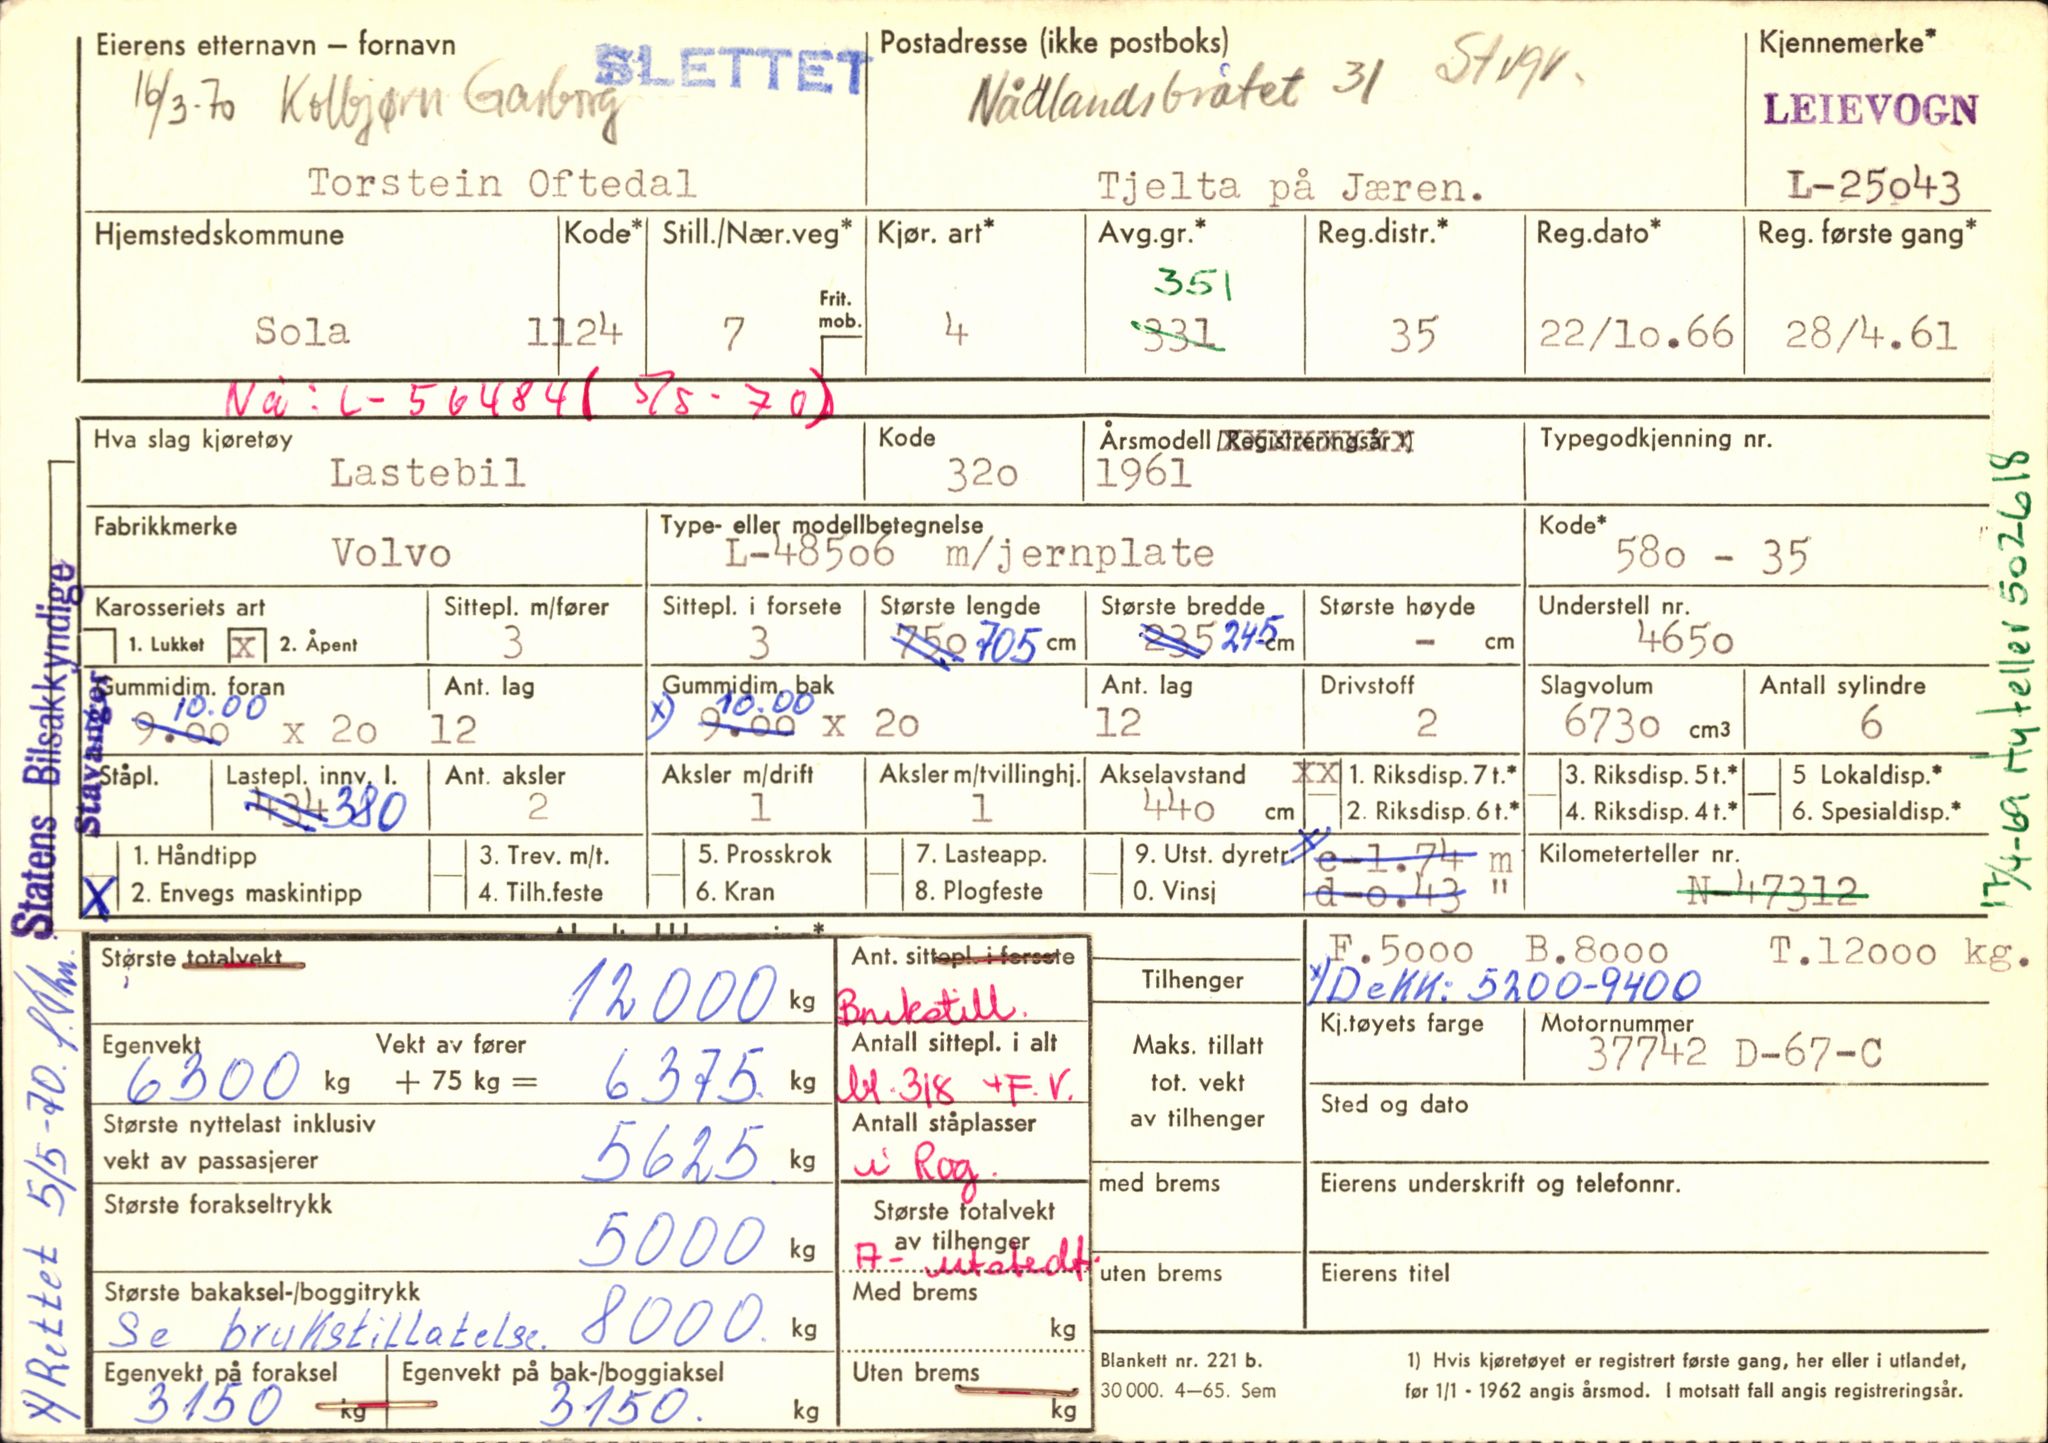 Eierens etternavn – fornavn
SLETTET
Postadresse (ikke postboks)
Kjennemerke*
16/3-70 Kolbjørn Garborg
Nådlandsbråtet 31 Stvgr.
LEIEVOGN
Torstein Oftedal
Tjelta på Jæren.
L-25o43
Hjemstedskommune
Kode*
Still./Nær.veg*
Kjør. art*
Avg.gr.*
Reg.distr.*
Reg.dato*
Reg. første gang*
351
Frit. mob.
Sola
1124
7
4
331
35
22/1o.66
28/4.61
Nå: L-56484 (5/5-70)
Hva slag kjøretøy
Kode
Årsmodell/Registreringsår 1)
Typegodkjenning nr.
Lastebil
32o
1961
Fabrikkmerke
Type- eller modellbetegnelse
Kode*
Volvo
L-485o6 m/jernplate
58o - 35
Karosseriets art
Sittepl. m/fører
Sittepl. i forsete
Største lengde
Største bredde
Største høyde
Understell nr.
1. Lukket
x
2. Åpent
3
3
75o 705 cm
235 245 cm
- cm
465o
Gummidim. foran
Ant. lag
Gummidim. bak
Ant. lag
Drivstoff
Slagvolum
Antall sylindre
10.00
x) 10.00
9.oo x 2o
12
9.oo x 2o
12
2
673o cm3
6
Ståpl.
Lastepl. innv. l.
Ant. aksler
Aksler m/drift
Aksler m/tvillinghj.
Akselavstand
XX
1. Riksdisp. 7 t.*
3. Riksdisp. 5 t.*
5 Lokaldisp.*
434 380
2
1
1
44o cm
2. Riksdisp. 6 t.*
4. Riksdisp. 4 t.*
6. Spesialdisp.*
1. Håndtipp
3. Trev. m/t.
5. Prosskrok
7. Lasteapp.
9. Utst. dyretr.
x c-1.74 m
Kilometerteller nr.
X
2. Envegs maskintipp
4. Tilh.feste
6. Kran
8. Plogfeste
0. Vinsj
d-o.43 "
N-47312
Statens Bilsakkyndige
Stavanger
17/4-69 Hyteller 502618
x) Rettet 5/5-70.
Største totalvekt
12000 kg
Ant. sittepl. i forsete
Brukstill.
Tilhenger
F.5ooo B.8ooo T.12ooo kg.
x) Dekk: 5200-9400
Egenvekt
6300 kg
Vekt av fører
+ 75 kg =
6375. kg
Antall sittepl. i alt
bl. 318 + F.V.
Maks. tillatt
tot. vekt
av tilhenger
Kj.tøyets farge
Motornummer
37742 D-67-C
Største nyttelast inklusiv
vekt av passasjerer
5625 kg
Antall ståplasser
i Rog.
Sted og dato
Største forakseltrykk
5000 kg
Største totalvekt
av tilhenger
A- utstedt.
med brems
Eierens underskrift og telefonnr.
Største bakaksel-/boggitrykk
Se brukstillatelse. 8000. kg
Med brems
kg
uten brems
Eierens titel
Egenvekt på foraksel
3150 kg
Egenvekt på bak-/boggiaksel
3150. kg
Uten brems
kg
Blankett nr. 221 b.
30 000. 4—65. Sem
1) Hvis kjøretøyet er registrert første gang, her eller i utlandet,
før 1/1 - 1962 angis årsmod. I motsatt fall angis registreringsår.